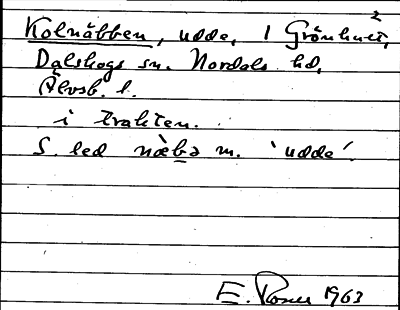 Kolnäbben, udde, 1 Grönhult²,
Dalskogs sn. Nordals hd,
Älvsb. l.
i trakten.
S. led næ̀bə m. 'udde'.
E. Rosell 1963